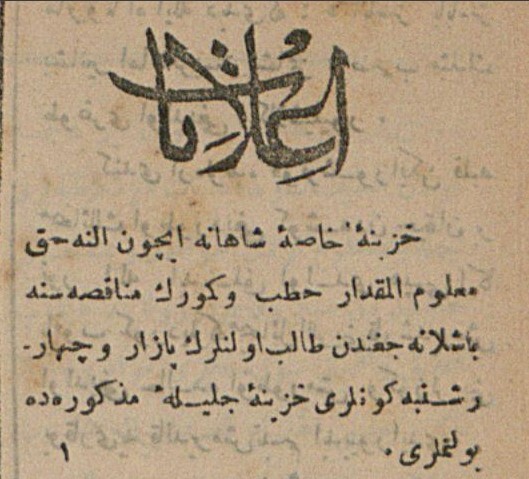 اعلانات
خزینهٔ خاصهٔ شاهانه ایچون النه‌جق
معلوم المقدار حطب وكمورك مناقصه‌سنه
باشلانه‌جغندن طالب اولنلرك پازار وچهار-
شنبه كونلری خزینهٔ جلیلهٔ مذكوره‌ده
بولنملری .
١